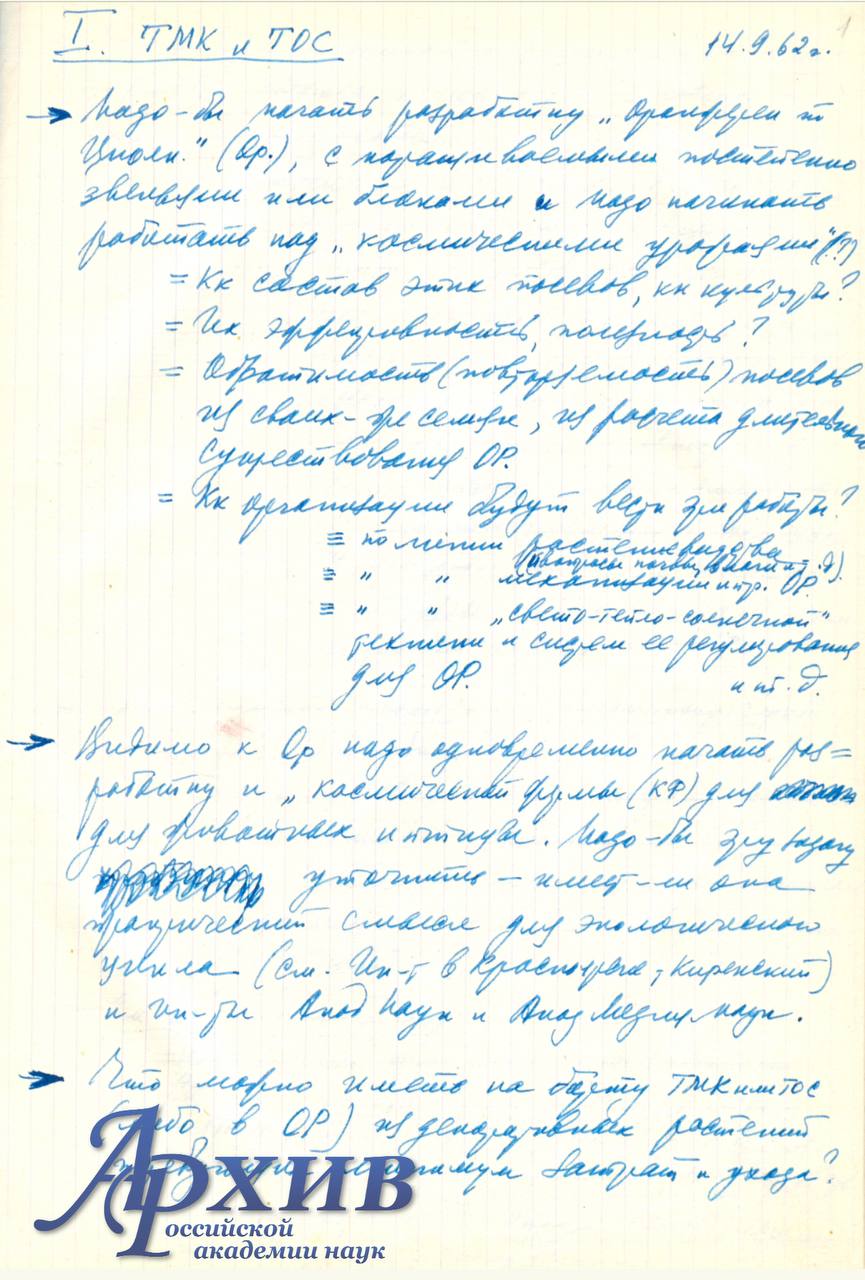 1
I. ТМК и ТОС
14.9.62г.
Надо-бы начать разработку „Оранжереи по
Циолк." (Ор.), с наращиваемыми постепенно
звеньями или блоками и надо начинать
работать над „космическими урожаями" (!?)
= Кк состав этих посевов, кк культуры?
= Их эффективность, полезность?
= Обратимость (повторяемость) посевов
из своих-же семян, из расчета длительного
существования ОР.
= Кк организации будут вести эти работы?
≡ по линии растениеводства
(вопросы почвы, влаги и т.д.)
≡ " " механизации и пр. ОР.
≡ " " „свето-тепло-солнечной"
техники и систем ее регулирования
для ОР. и т.д.
Видимо к Ор надо одновременно начать раз=
работку и „космической фермы (КФ) для
для животных и птицы. Надо-бы эту задачу
уточнить – имеет-ли она
практический смысл для экологического
цикла (см. Ин-т в Красноярске, Киренский)
и ин-ты Акад Наук и Акад Медиц наук.
Что можно иметь на борту ТМК или ТОС
(либо в ОР) из декоративных растений
минимум затрат и ухода?
Архив
Российской
академии наук